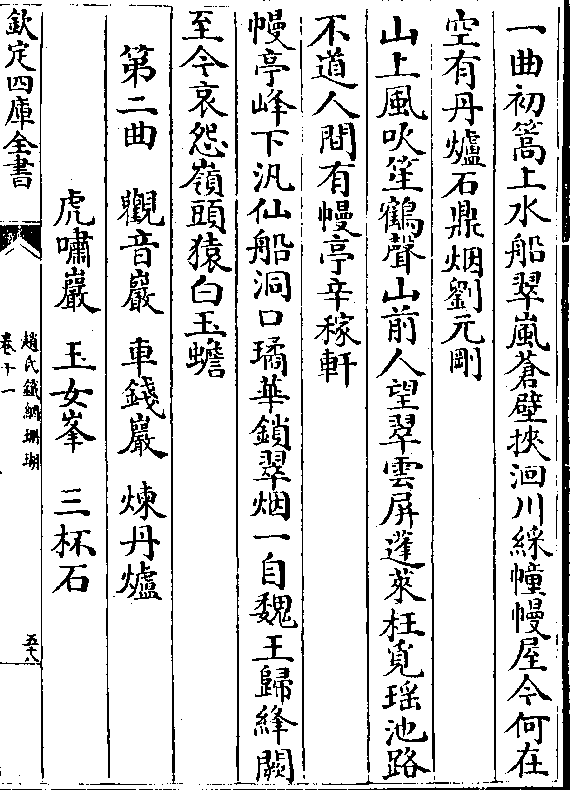 一曲初篙上水船翠嵐蒼壁挾洄川綵幢幔屋今何在
空有丹爐石鼎烟劉元剛
山上風吹笙鶴聲山前人望翠雲屏蓬萊枉覓瑶池路
不道人間有幔亭辛稼軒
幔亭峰下汎仙船洞口璚華鎖翠烟一自魏王歸絳闕
至今哀怨嶺頭猿白玉蟾
第二曲　觀音巖　車錢巖　煉丹爐
虎嘯巖　玉女峯　三杯石
欽定四庫全書
趙氏鐵網珊瑚
卷十一
五十八